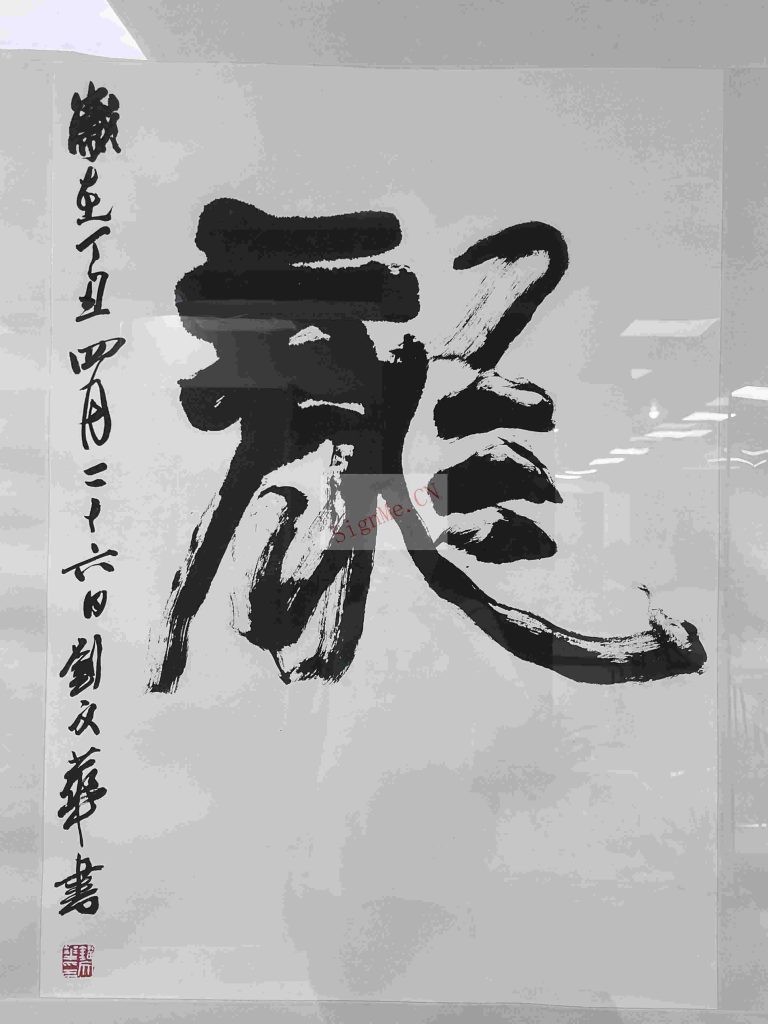 龍
歲在丁丑四月二十六日劉文華書
SignMe.CN